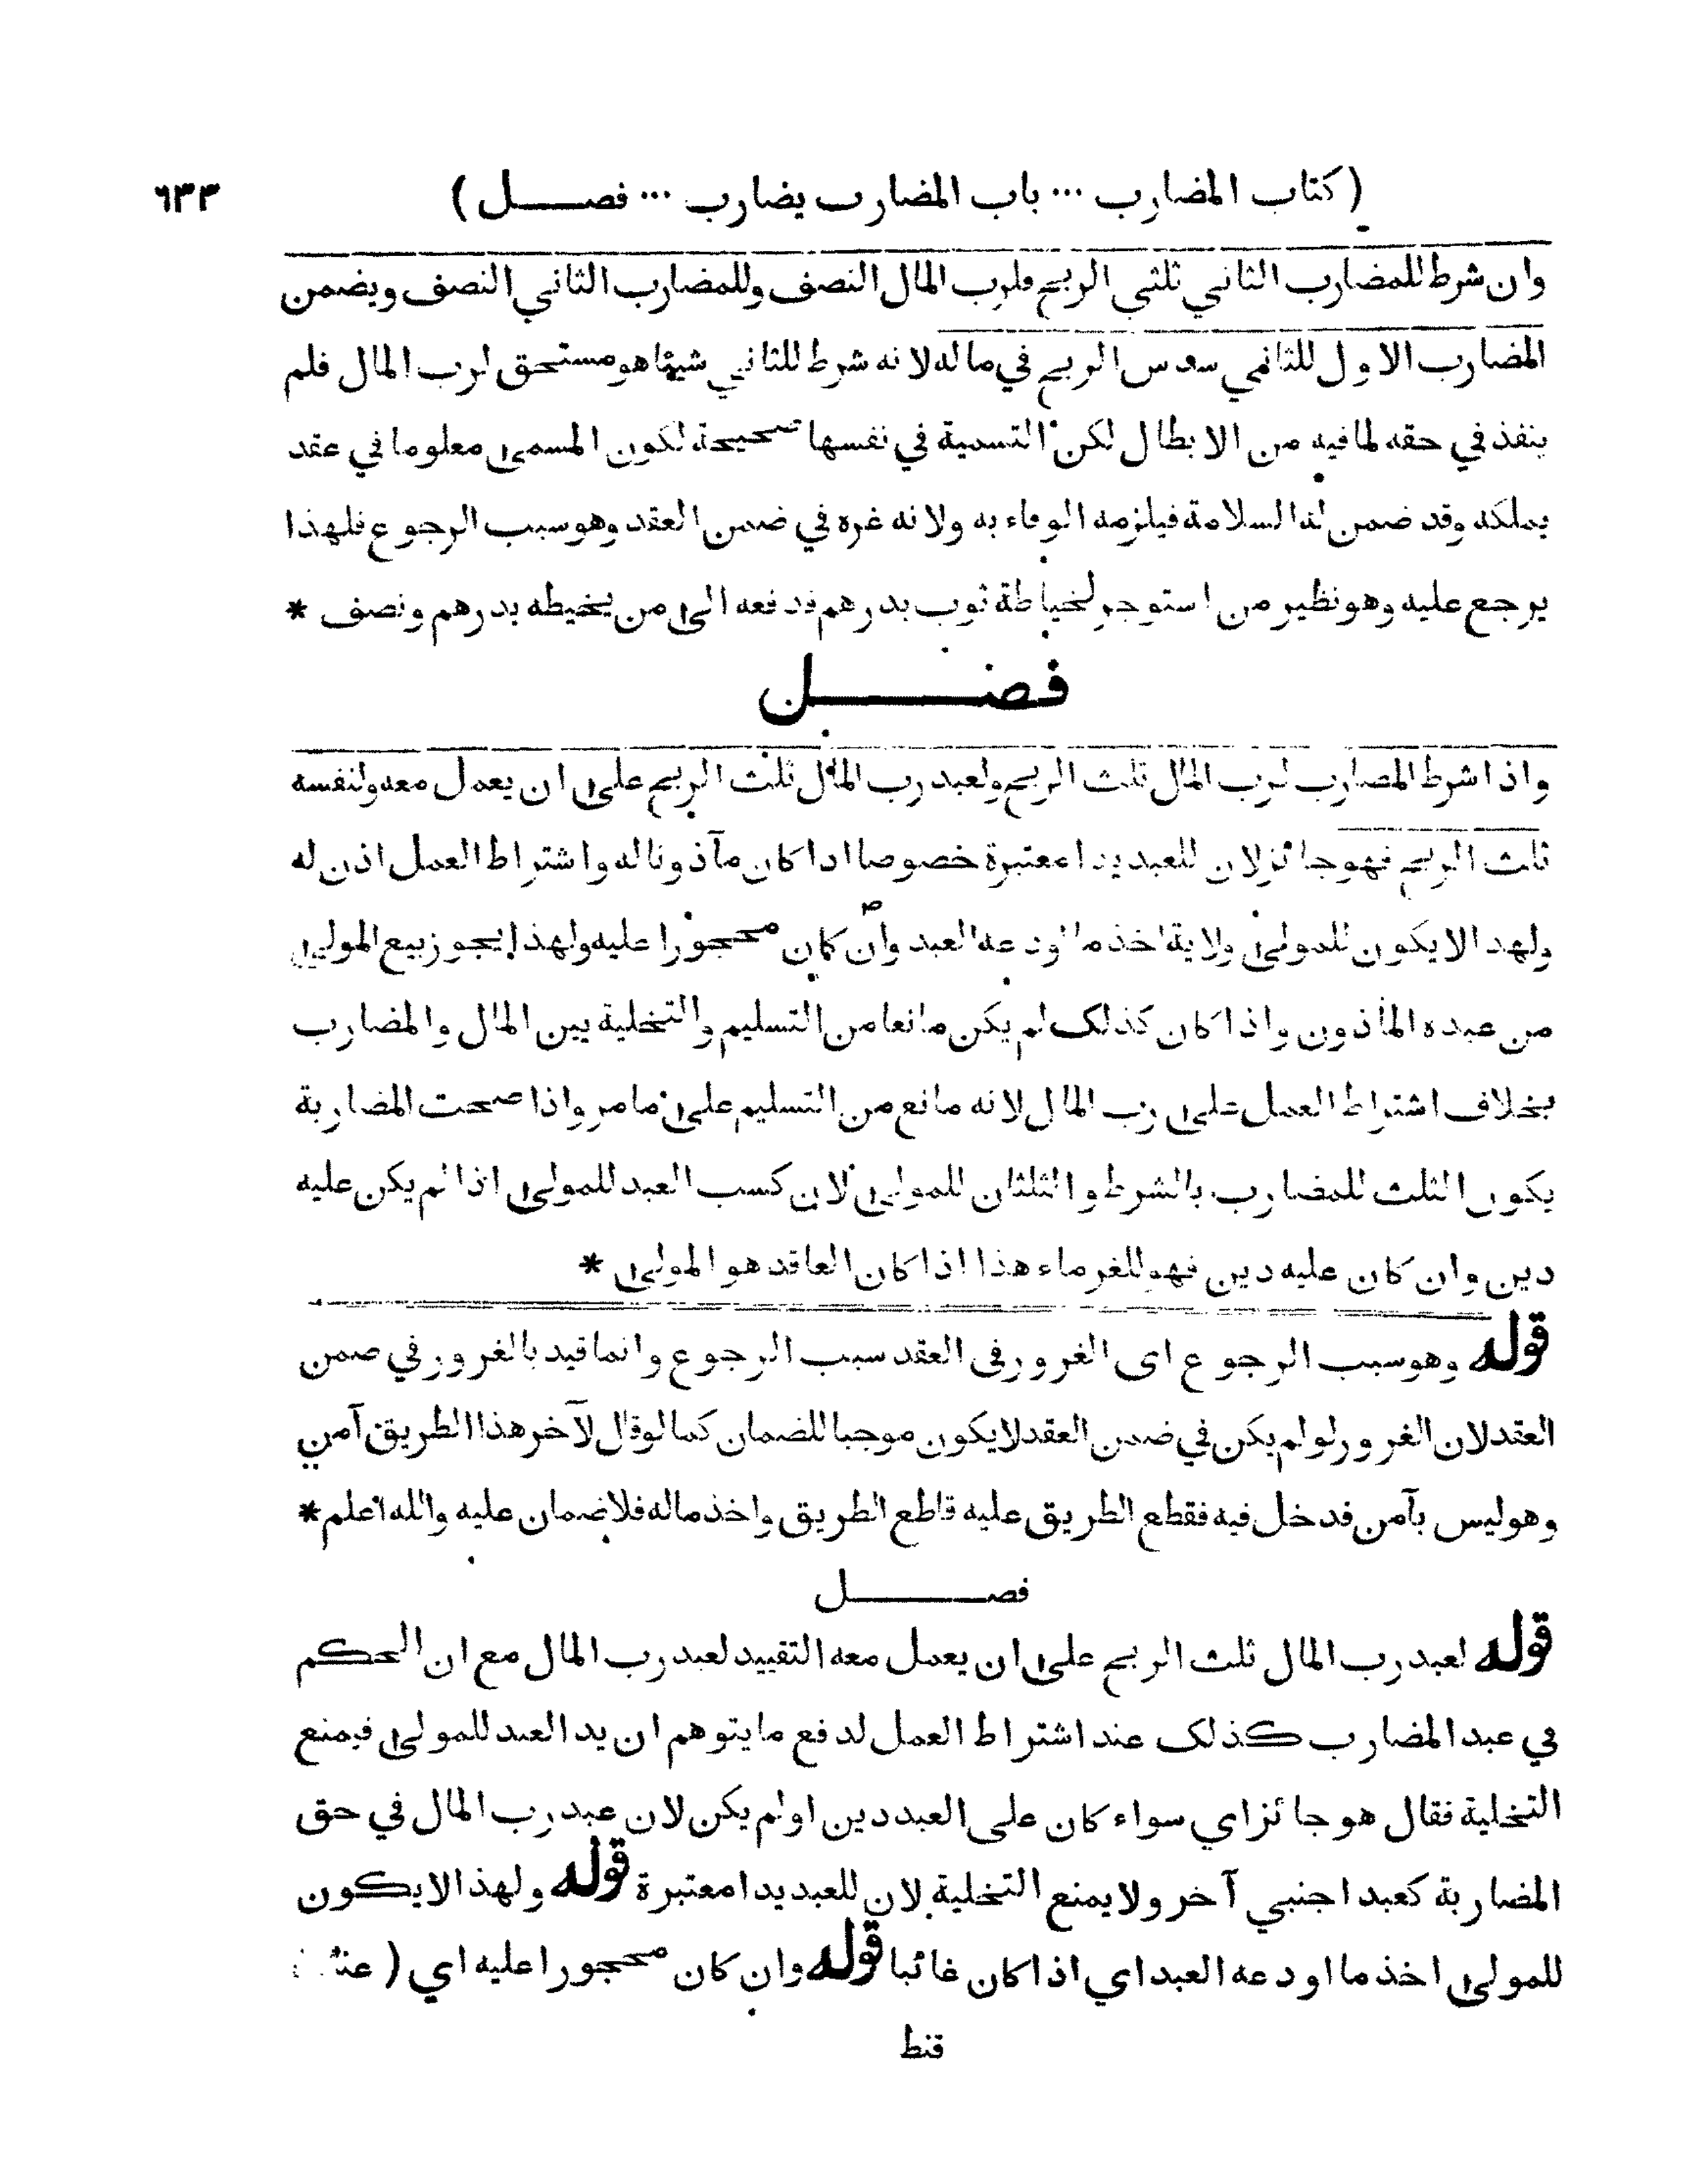 ( كتاب المضارب ... باب المضارب يضارب ... فصل )
٦٣٣
وان شرط للمضارب الثاني ثلثي الربح فلرب المال النصف وللمضارب الثاني النصف ويضمن
المضارب الاول للثاني سدس الربح في ماله لانه شرط للثاني شيئا هو مستحق لرب المال فلم
ينفذ في حقه لما فيه من الابطال لكن التسمية في نفسها صحيحة لكون المسمى معلوما في عقد
يملكه وقد ضمن له السلامة فيلزمه الوفاء به ولانه غره في ضمن العقد وهو سبب الرجوع فلهذا
يرجع عليه وهو نظير من استوجر لخياطة ثوب بدرهم فدفعه الى من يخيطه بدرهم ونصف *
فصل
واذا شرط المضارب لرب المال ثلث الربح ولعبد رب المال ثلث الربح على ان يعمل معه ولنفسه
ثلث الربح فهو جائز لان للعبد يدا معتبرة خصوصا اذا كان مآذونا له واشتراط العمل اذن له
ولهذا لا يكون للمولى ولاية اخذ ما اودعه العبد وان كان محجورا عليه ولهذا يجوز بيع المولى
من عبده المأذون واذا كان كذلك لم يكن مانعا من التسليم والتخلية بين المال والمضارب
بخلاف اشتراط العمل على رب المال لانه مانع من التسليم على ما مر واذا صحت المضاربة
يكون الثلث للمضارب بالشرط والثلثان للمولى لان كسب العبد للمولى اذا لم يكن عليه
دين وان كان عليه دين فهو للغرماء هذا اذا كان العاقد هو المولى *
قوله وهو سبب الرجوع اى الغرور فى العقد سبب الرجوع وانما قيد بالغرور في ضمن
العقد لان الغرور لو لم يكن في ضمن العقد لا يكون موجبا للضمان كما لو قال لآخر هذا الطريق آمن
وهو ليس بآمن فدخل فيه فقطع الطريق عليه قاطع الطريق واخذ ماله فلا ضمان عليه والله اعلم *
فصل
قوله لعبد رب المال ثلث الربح على ان يعمل معه التقييد لعبد رب المال مع ان الحكم
في عبد المضارب كذلك عند اشتراط العمل لدفع ما يتوهم ان يد العبد للمولى فيمنع
التخلية فقال هو جائز اي سواء كان على العبد دين او لم يكن لان عبد رب المال في حق
المضاربة كعبد اجنبي آخر ولا يمنع التخلية لان للعبد يدا معتبرة قوله ولهذا لا يكون
للمولى اخذ ما اودعه العبد اي اذا كان غائبا قوله وان كان محجورا عليه اي (
قنط